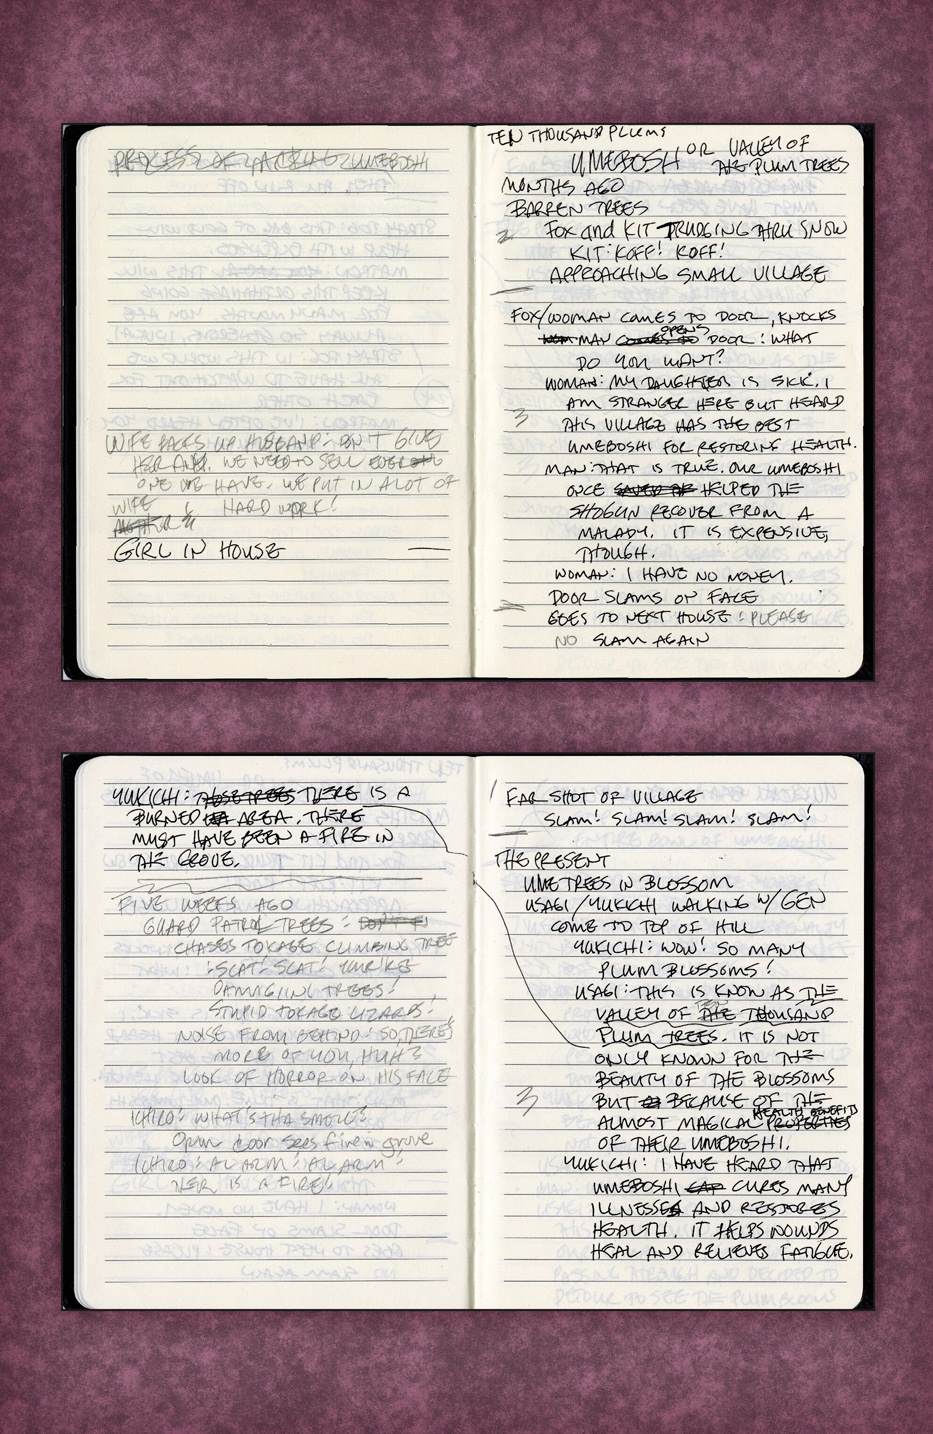 PROCESS OF UMEBOSHI
WIFE FACES UP HUSBAND: DON'T GIVE
HER ANY. WE NEED TO SELL EVERY
ONE WE HAVE. WE PUT IN A LOT OF
WIFE HARD WORK!
GIRL IN HOUSE
TEN THOUSAND PLUMS
UMEBOSHI OR VALLEY OF
THE PLUM TREES
MONTHS AGO
BARREN TREES
2 FOX and KIT TRUDGING THRU SNOW
KIT: KOFF! KOFF!
APPROACHING SMALL VILLAGE
FOX/WOMAN COMES TO DOOR, KNOCKS
MAN OPENS DOOR: WHAT
DO YOU WANT?
WOMAN: MY DAUGHTER IS SICK. I
AM STRANGER HERE BUT HEARD
3 THIS VILLAGE HAS THE BEST
UMEBOSHI FOR RESTORING HEALTH.
MAN: THAT IS TRUE. OUR UMEBOSHI
ONCE HELPED THE
SHOGUN RECOVER FROM A
MALADY. IT IS EXPENSIVE,
THOUGH.
WOMAN: I HAVE NO MONEY.
DOOR SLAMS ON FACE
GOES TO NEXT HOUSE: PLEASE
NO SLAM AGAIN
YUKICHI: THOSE TREES THERE IS A
BURNED AREA. THERE
MUST HAVE BEEN A FIRE IN
THE GROVE.
FIVE WEEKS AGO
GUARD PATROL TREES:
CHASES TOKAGE CLIMBING TREE
: SCAT! SCAT! YOU'RE
DAMAGING TREES!
STUPID TOKAGE LIZARDS!
NOISE FROM BEHIND: SO, THERE'S
MORE OF YOU, HUH?
LOOK OF HORROR ON HIS FACE
ICHIRO: WHAT'S THA SMOKE?
Open door sees fire in grove
ICHIRO: ALARM! ALARM!
THER IS A FIRE!
1 FAR SHOT OF VILLAGE
SLAM! SLAM! SLAM! SLAM!
THE PRESENT
UME TREES IN BLOSSOM
USAGI/YUKICHI WALKING W/GEN
COME TO TOP OF HILL
YUKICHI: WOW! SO MANY
PLUM BLOSSOMS!
USAGI: THIS IS KNOW AS THE
VALLEY OF TEN THOUSAND
PLUM TREES. IT IS NOT
ONLY KNOWN FOR THE
BEAUTY OF THE BLOSSOMS
3 BUT BECAUSE OF THE
ALMOST MAGICAL PROPERTIES HEALTH BENEFITS
OF THEIR UMEBOSHI.
YUKICHI: I HAVE HEARD THAT
UMEBOSHI CAN CURES MANY
ILLNESSES AND RESTORES
HEALTH. IT HELPS WOUNDS
HEAL AND RELIEVES FATIGUE.